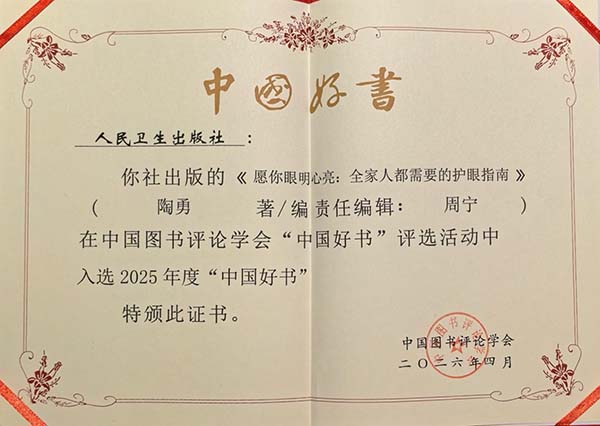 中國好書
人民卫生出版社：
你社出版的《愿你眼明心亮：全家人都需要的护眼指南》
（陶勇 著/编 责任编辑：周宁）
在中国图书评论学会“中国好书”评选活动中
入选 2025 年度“中国好书”
特颁此证书。
中国图书评论学会
二〇二六年四月